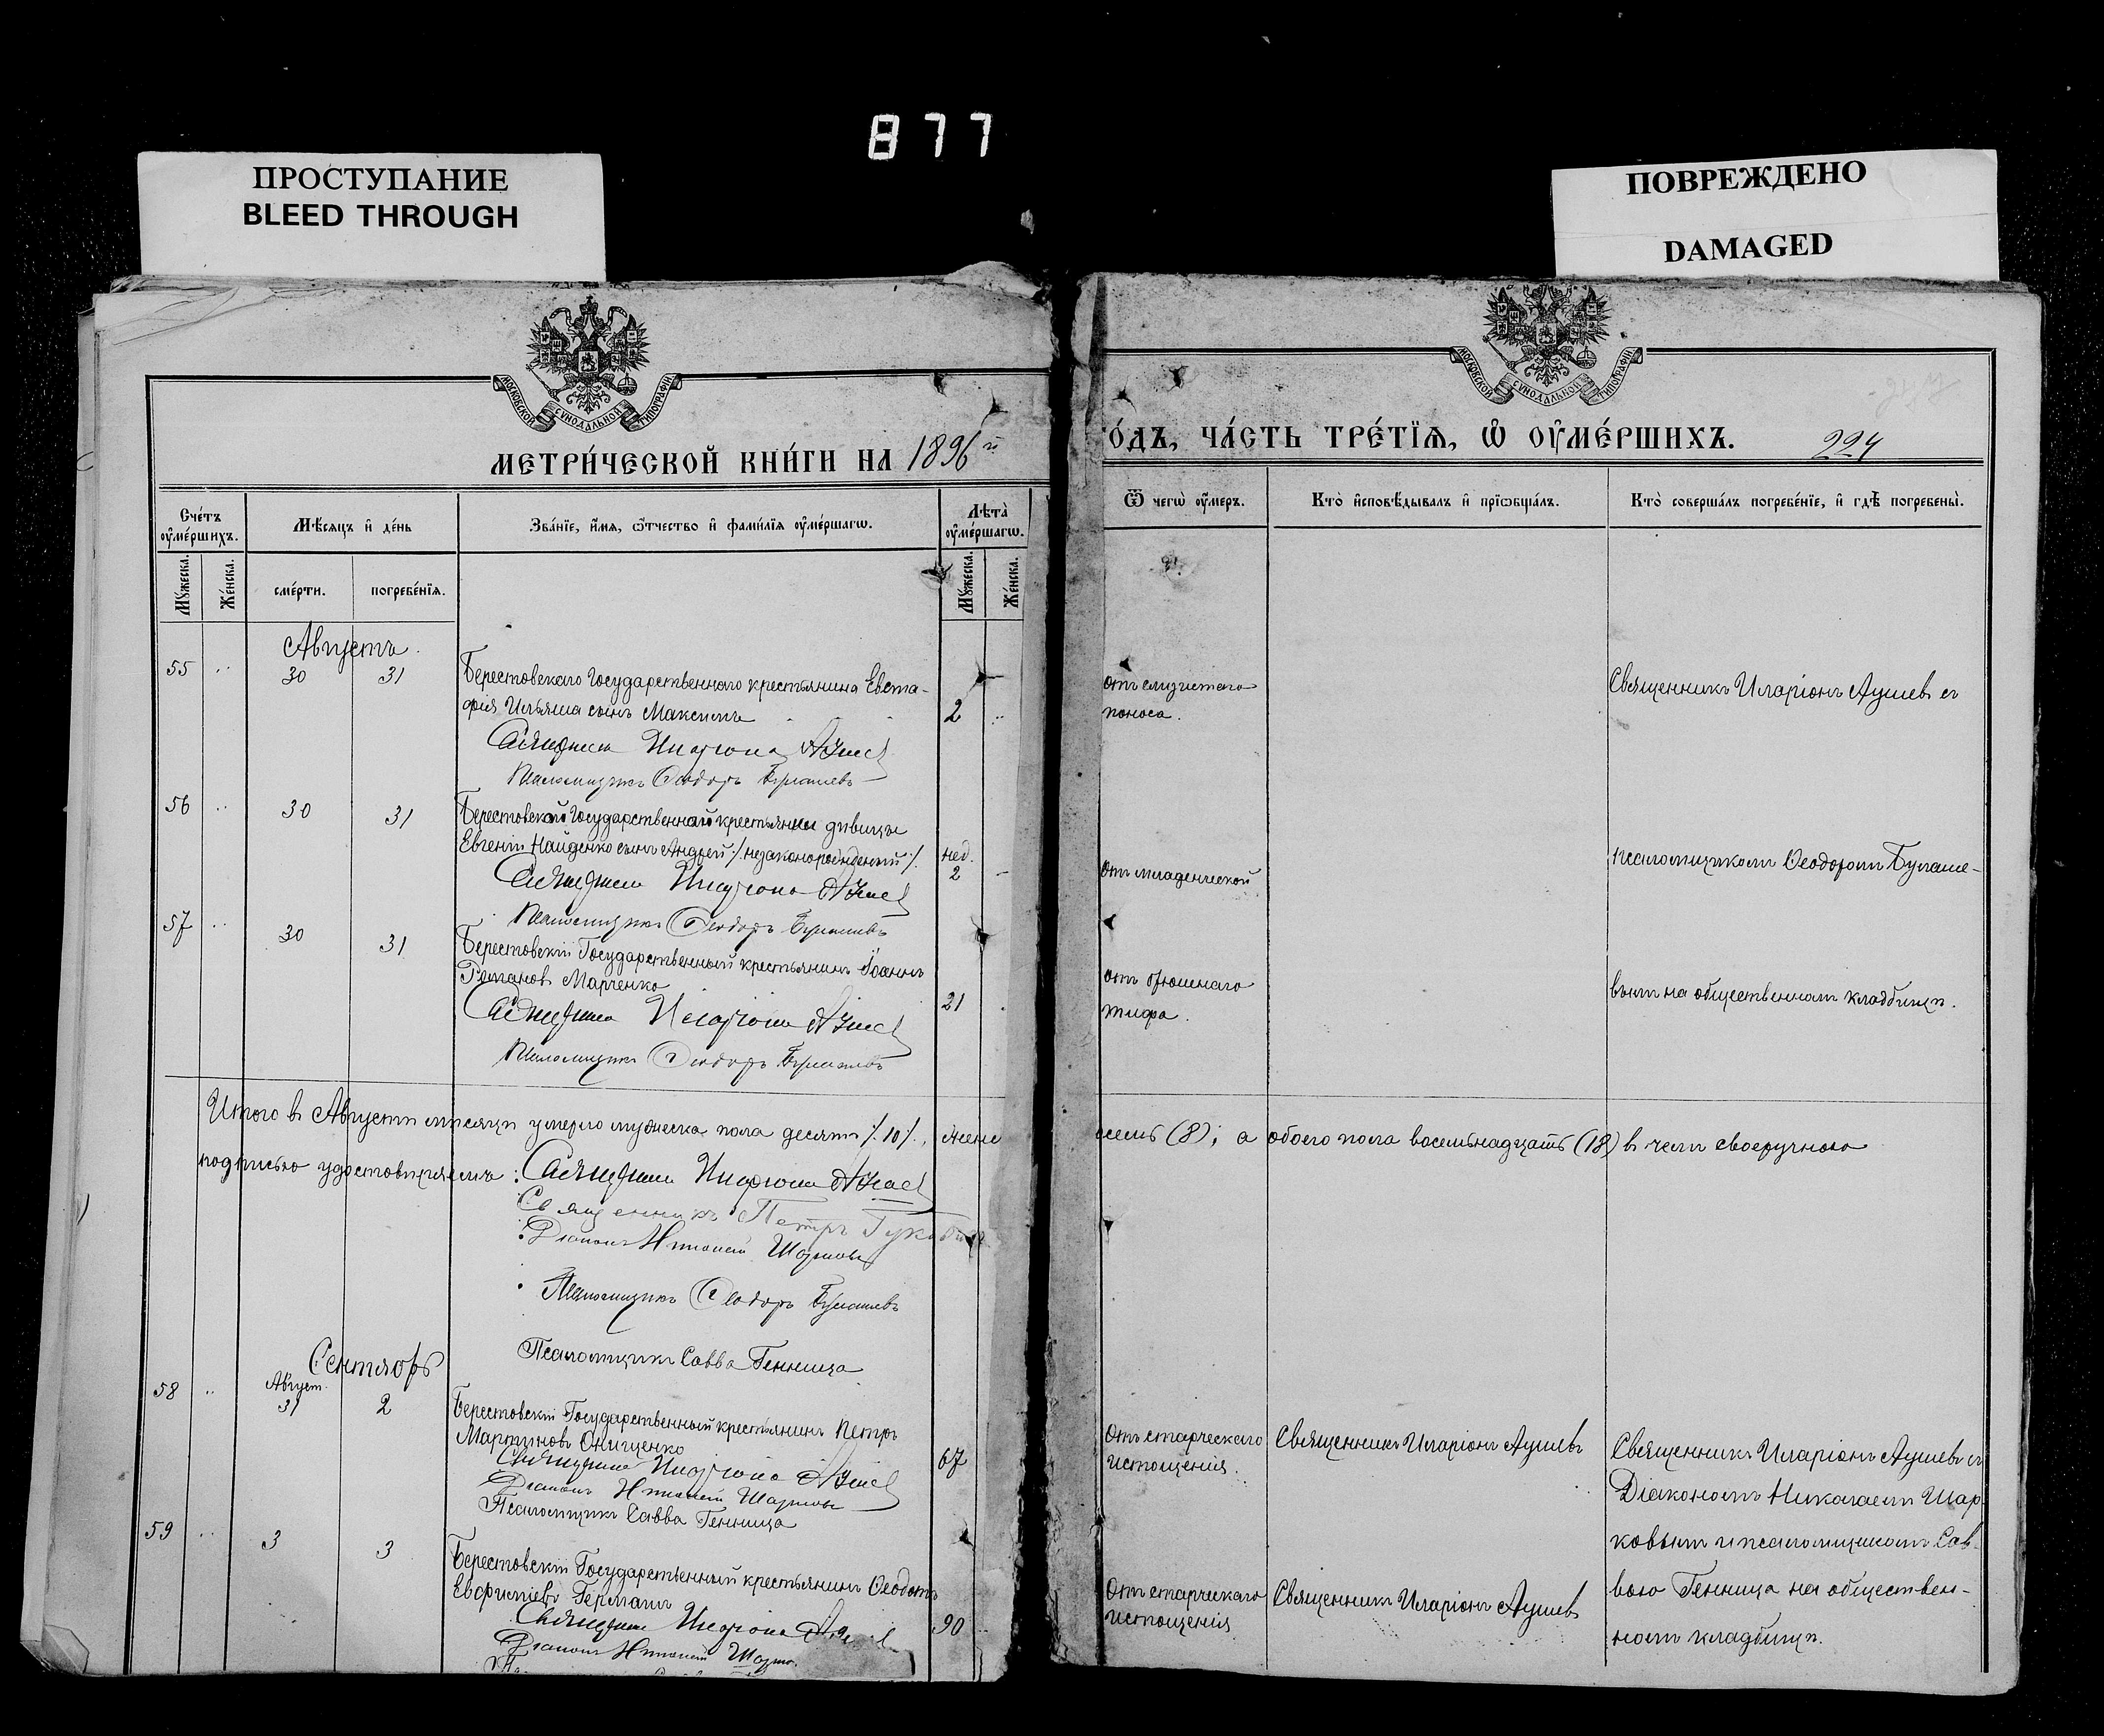 877
ПРОСТУПАНИЕ
BLEED THROUGH
ПОВРЕЖДЕНО
DAMAGED
МОСКОВСКОЙ СѴНОДАЛЬНОЙ ТИПОГРАФІИ
МОСКОВСКОЙ СѴНОДАЛЬНОЙ ТИПОГРАФІИ
МЕТРИ́ЧЕСКОЙ КНИ́ГИ НА 1896й
О́ДЪ, ЧА́СТЬ ТРЕ́ТЇѦ, Ѡ҆ ОУ҆МЕ́РШИХЪ. 224
Сче́тъ оу҆ме́ршихъ.
Мꙋ́жеска.
Же́нска.
Мѣ́сѧцъ и҆ де́нь
сме́рти.
погребе́нїѧ.
Зва́нїе, и҆́мѧ, ѻ҆́тчество и҆ фами́лїѧ оу҆ме́ршагѡ.
Лѣ̑та̀ оу҆ме́ршагѡ.
Мꙋ́жеска.
Же́нска.
Ѿ чегѡ̀ оу҆́меръ.
Кто̀ и҆сповѣ́дывалъ и҆ прїѡбща́лъ.
Кто̀ соверша́лъ погребе́нїе, и҆ гдѣ̀ погребены̀.
Августъ.
55 30 31 Берестовскаго Государственнаго крестьянина Евста-
фія Ильяша сынъ Максимъ 2
Священникъ Иларіонъ Аушевъ
Псаломщикъ Ѳеодоръ Булашевъ
отъ слизистаго
поноса.
Священникъ Иларіонъ Аушевъ съ
56 30 31 Берестовской Государственной крестьянки дѣвицы
Евгеніи Найденко сынъ Андрей ./. незаконорожденный ./. нед. 2
Священникъ Иларіонъ Аушевъ
Псаломщикъ Ѳеодоръ Булашевъ
отъ младенческой
псаломщикомъ Ѳеодоромъ Булаше-
57 30 31 Берестовскій Государственный крестьянинъ Іоаннъ
Романовъ Марченко 21
Священникъ Иларіонъ Аушевъ
Псаломщикъ Ѳеодоръ Булашевъ
отъ брюшнаго
тифа.
вымъ на общественномъ кладбищѣ.
Итого въ Августѣ мѣсяцѣ умерло мужеска пола десять ./. 10 ./., женс
осемь (8); а обоего пола восемьнадцать (18) въ чемъ своеручною
подписью удостовѣряемъ: Священникъ Иларіонъ Аушевъ
Священникъ Петръ
Діаконъ Николай Шарковъ
Псаломщикъ Ѳеодоръ Булашевъ
Псаломщикъ Савва Генница
Сентябрь
58 Август. 31 2 Берестовскій Государственный крестьянинъ Петръ
Мартиновъ Онищенко 67
Священникъ Иларіонъ Аушевъ
Діаконъ Николай Шарковъ
Псаломщикъ Савва Генница
Отъ старческаго
истощенія.
Священникъ Иларіонъ Аушевъ
Священникъ Иларіонъ Аушевъ съ
Діакономъ Николаемъ Шар-
ковымъ и псаломщикомъ Сав-
59 3 3 Берестовскій Государственный крестьянинъ Ѳеодотъ
Евфиміевъ Германъ 90
Священникъ Иларіонъ
Діаконъ Николай Шарко
Отъ старческаго
истощенія
Священникъ Иларіонъ Аушевъ
вою Генница на обществен-
номъ кладбищѣ.